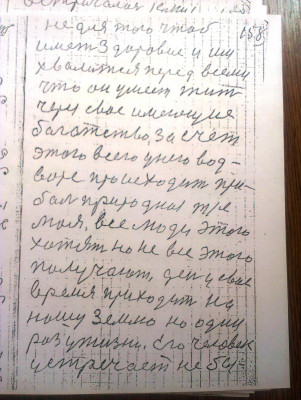 158
не для того чтоб
имет здоровие и им
хвалится перед всеми
что он умеет жит
через свое имеющие
багатство, за счет
этого всего унего вод-
воре происходит при-
бал природная
все люди этого
хотят но не все этого
получают, ден у свое
время приходит на
нашу землю но один
раз ужизни. Его человек
устречает не бу-